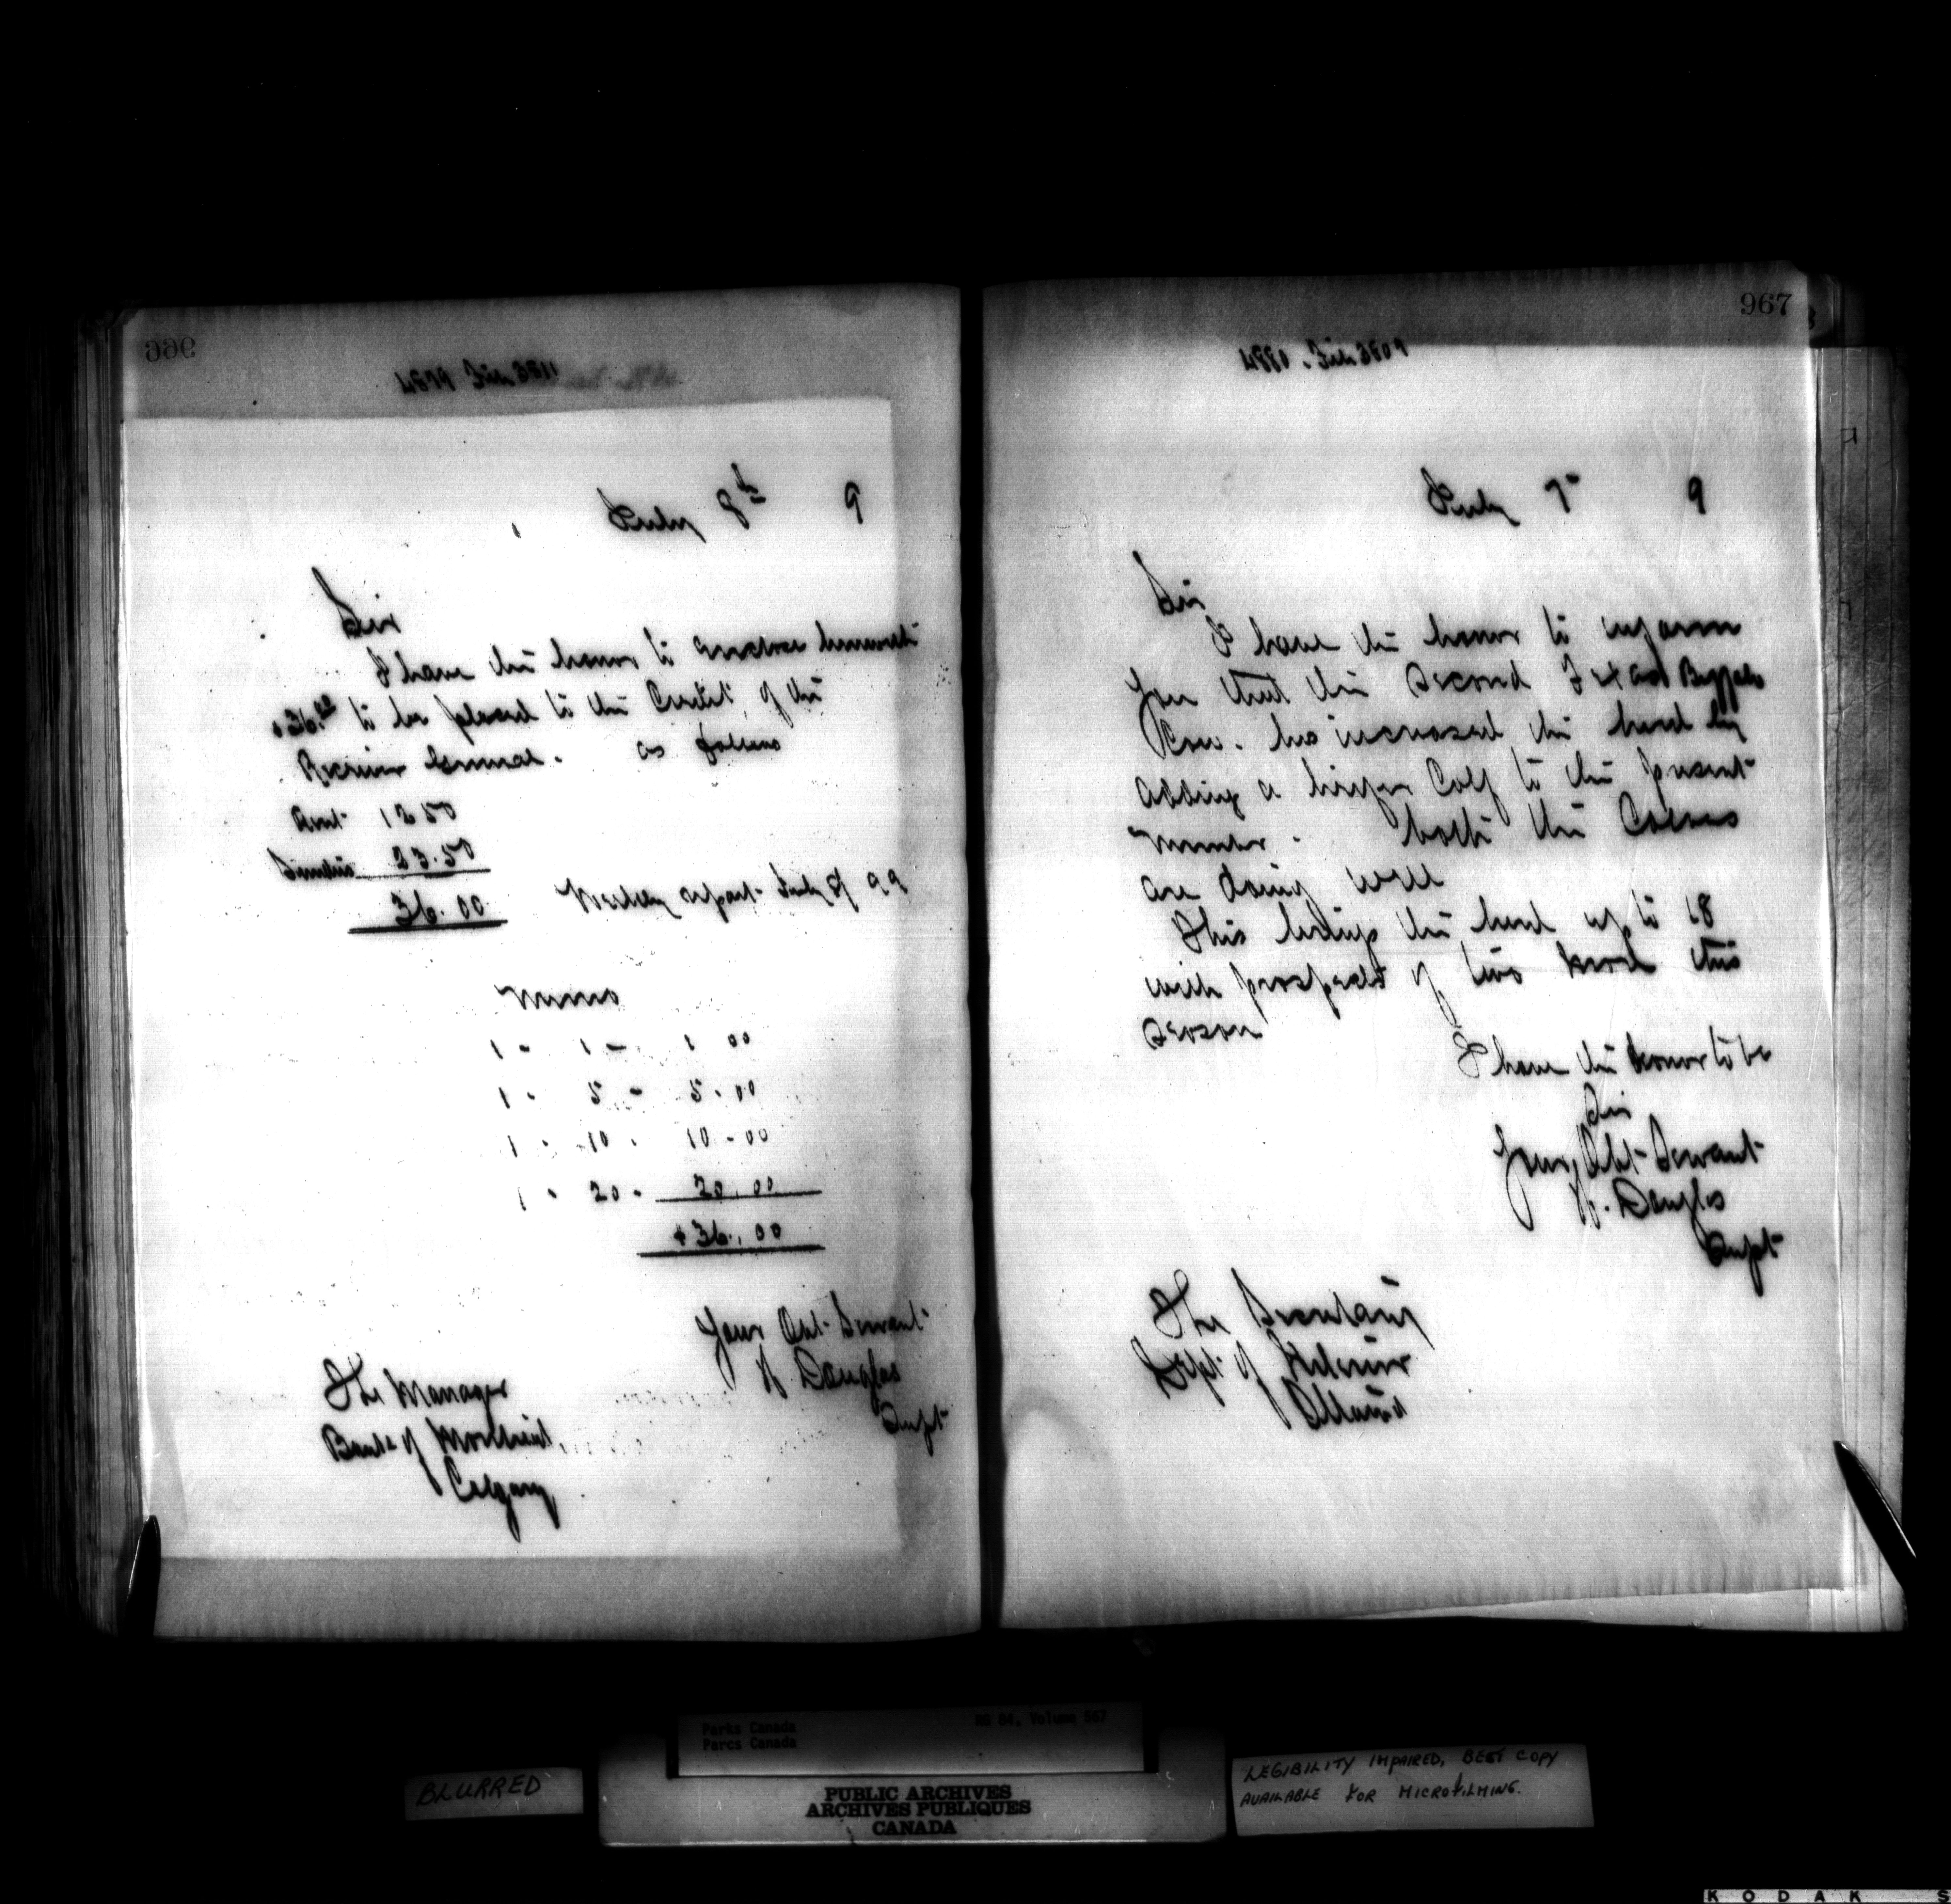 966
4879 File 3811
July 8th 9
Sir
I have the honor to enclose herewith
$36.00 to be placed to the Credit of the
Receiver General. as follows
Rent 12 50
Sundries 23.50
36.00 Weekly report July 8 99
Memo
1 - 1 - 1 00
1 - 5 - 5.00
1 - 10 - 10-00
1 - 20 - 20.00
$36.00
Your Obt Servant
H. Douglas
Supt
The Manager
Bank of Montreal,
Calgary
967
4880. File 3809
July 7 9
Sir
I have the honor to inform
you that the second Texas Buffalo
Cow. has increased the herd by
adding a heifer Calf to the present
number. both the Calves
are doing well
This brings the herd up to 18
with prospects of two more this
season
I have the honor to be
Sir
Your Obt Servant
H. Douglas
Supt
The Secretary
Dept of Interior
Ottawa
BLURRED
Parks Canada RG 84, Volume 567
Parcs Canada
PUBLIC ARCHIVES
ARCHIVES PUBLIQUES
CANADA
LEGIBILITY IMPAIRED, BEST COPY
AVAILABLE FOR MICROFILMING.
KODAK S